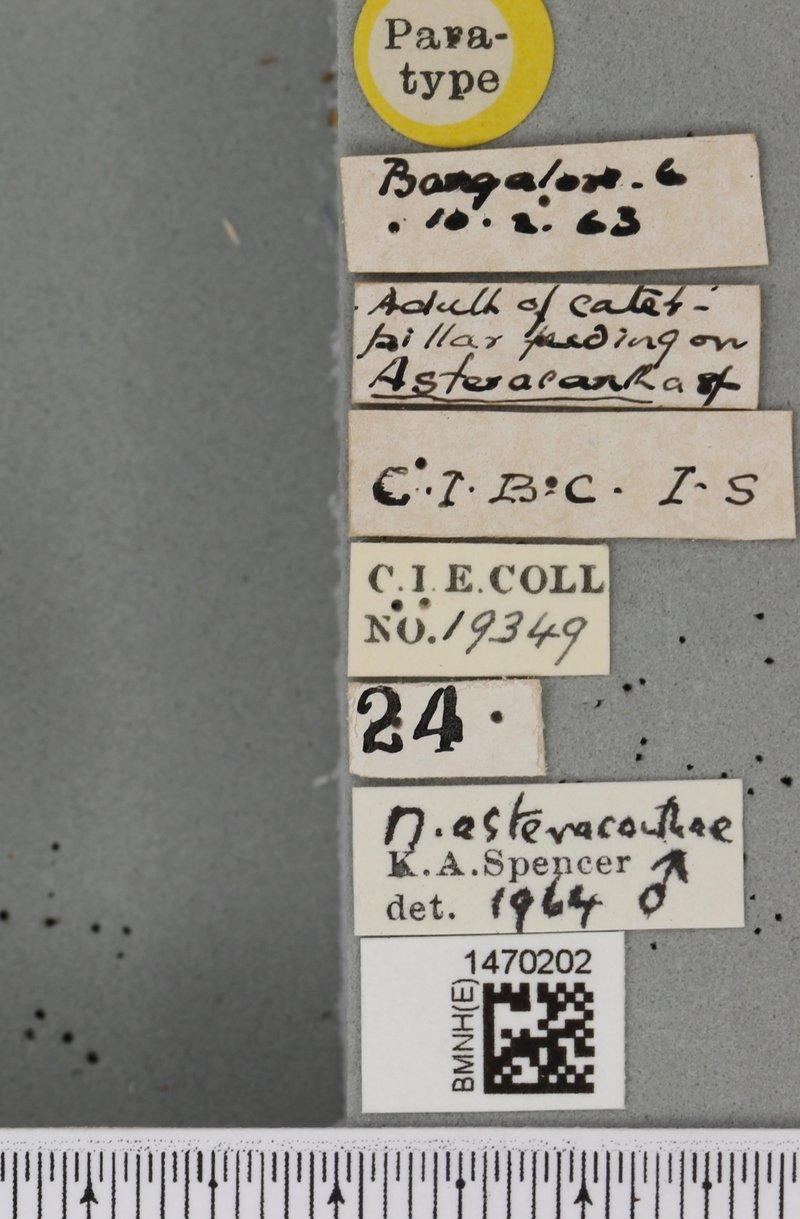 Para-
type
Bangalore. 6
. 10. 2. 63
Adult of cater-
pillar feeding on
Asteracantha sp
C. I. B. C. I. S
C.I.E.COLL
NO. 19349
24
M. asteracanthae
K.A.Spencer ♂
det. 1964
1470202
BMNH(E)